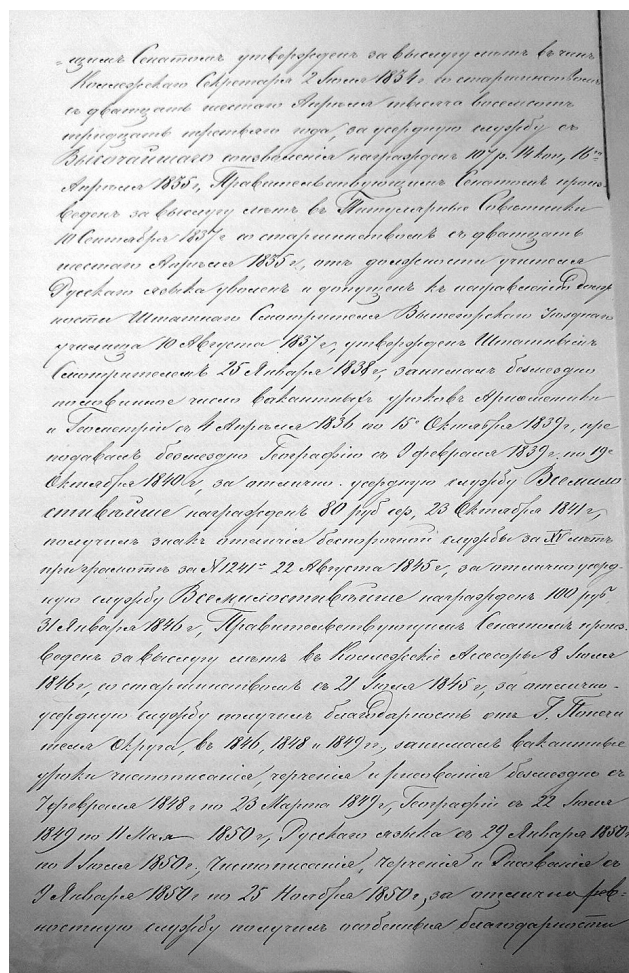 щимъ Сенатомъ утвержденъ за выслугу лѣтъ въ чинѣ
Коллежскаго Секретаря 2 Іюля 1834 г. со старшинствомъ
съ двадцать шестаго Апрѣля тысяча восемьсотъ
тридцать третьяго года, за усердную службу съ
Высочайшаго соизволенія награжденъ 107 р. 14 коп, 16го
Апрѣля 1835 г, Правительствующимъ Сенатомъ произ-
веденъ за выслугу лѣтъ въ Титулярные Совѣтники
10 Сентября 1837 г со старшинствомъ съ двадцать
шестаго Апрѣля 1835 г, отъ должности учителя
Русскаго языка уволенъ и допущенъ къ исправленію долж
ности Штатнаго Смотрителя Вытегорскаго Уѣзднаго
училища 10 Августа 1837 г, утвержденъ Штатнымъ
Смотрителемъ 25 Января 1838 г, занималъ безмездно
половинное число вакантныхъ уроковъ Ариѳметики
и Геометріи съ 4 Апрѣля 1836 по 15е Октября 1839 г, пре
подавалъ безмездно Географію съ 9 февраля 1839 г. по 19е
Октября 1840 г, за отлично-усердную службу Всемило
стивѣйше награжденъ 80 руб сер, 23 Октября 1841 г,
получилъ знакъ отличія безпорочной службы за XV лѣтъ
при грамотѣ за № 1241м 22 Августа 1845 г, за отлично усерд-
ную службу Всемилостивѣйше награжденъ 100 руб
31 Января 1846 г, Правительствующимъ Сенатомъ произ-
веденъ за выслугу лѣтъ въ Коллежскіе Асесоры 8 Іюля
1846 г, со старшинствомъ съ 21 Іюля 1845 г, за отлично-
усердную службу получилъ благодарность отъ Г. Попечи
теля Округа, въ 1846, 1848 и 1849 г, занималъ вакантные
уроки чистописанія, черченія и рисованія безмездно съ
7 февраля 1848 г по 23 Марта 1849 г, Географіи съ 22 Іюля
1849 по 11 Мая 1850 г, Русскаго языка съ 29 Января 1850 г
по 1 Іюля 1850 г, Чистописанія, Черченія и Рисованія съ
9 Января 1850 г по 25 Ноября 1850 г, за отлично рев-
ностную службу получилъ особенныя благодарности